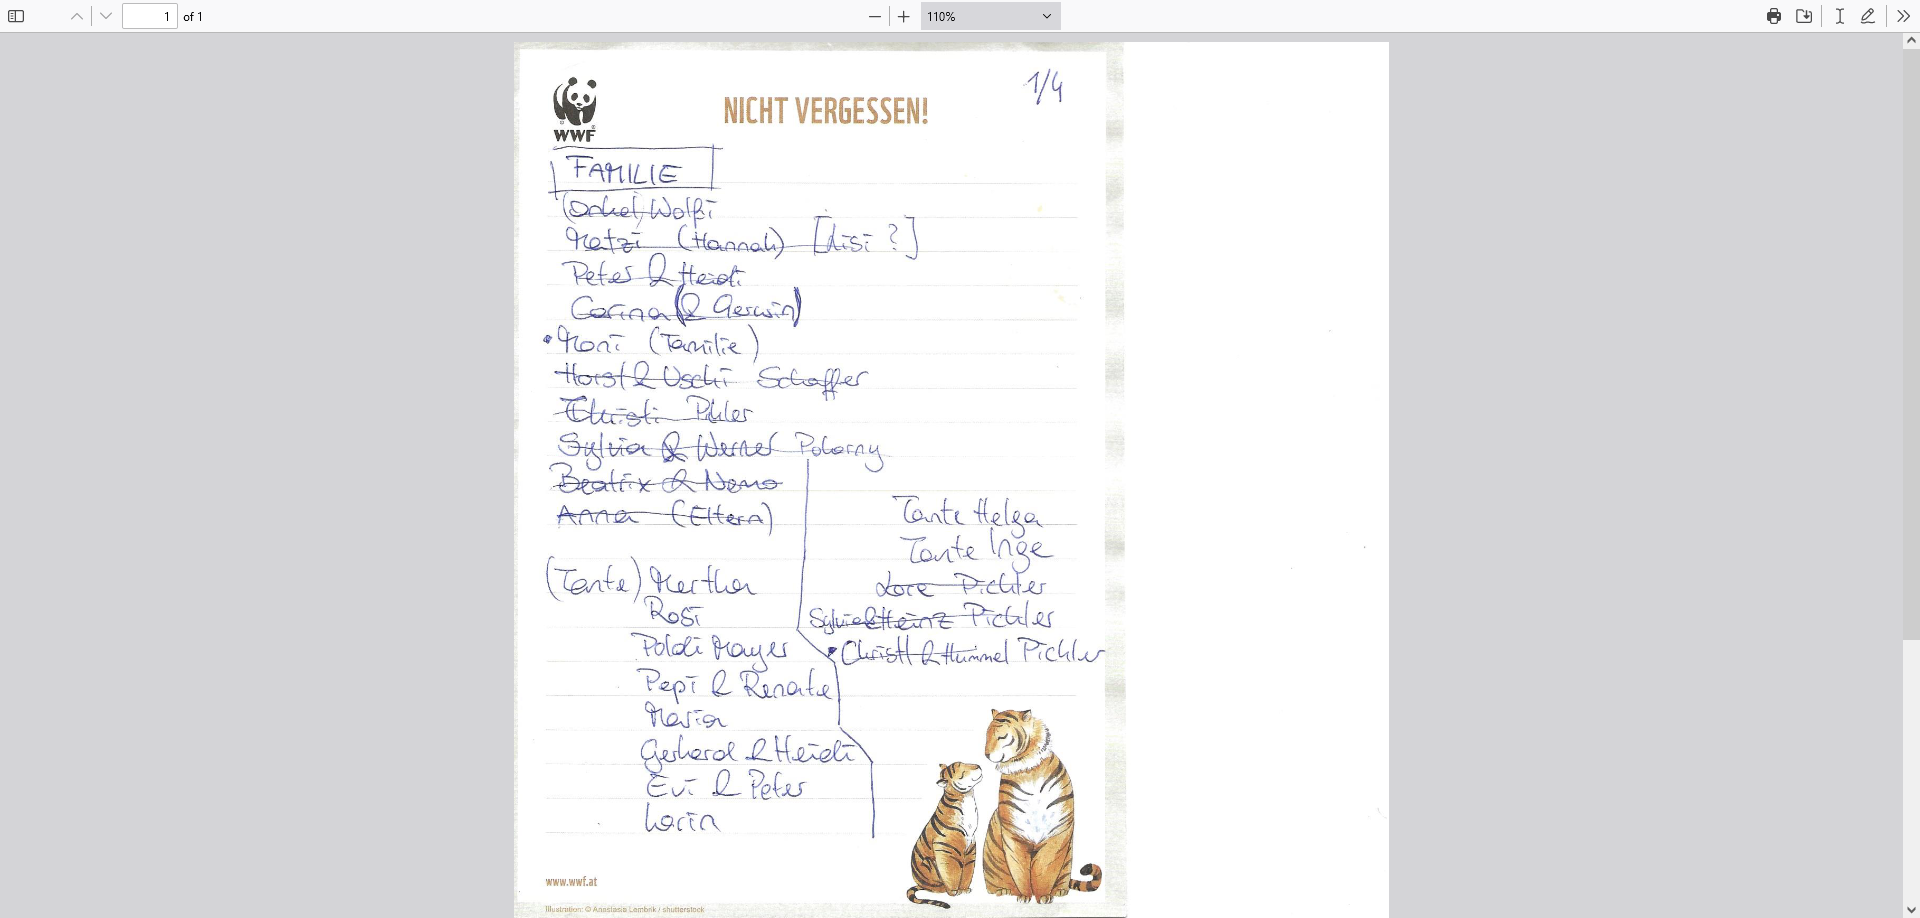 1 of 1
110%
1/4
WWF
NICHT VERGESSEN!
FAMILIE
(Onkel) Wolfi
Matzi (Hannah) [Lisi ?]
Peter & Heidi
Corina (& Gerwin)
• Moni (Familie)
Horst & Uschi Schaffer
Christi Pihler
Sylvia & Werner Pokorny
Beatrix & Nemo
Anna (Eltern)
(Tante) Martha
Rosi
Poldi Mayer
Pepi & Renate
Maria
Gerhard & Heidi
Evi & Peter
Karin
Tante Helga
Tante Inge
Lore Pichler
Sylvia & Heinz Pichler
• Christl & Hummel Pichler
www.wwf.at
Illustration: © Anastasia Lembrik / shutterstock